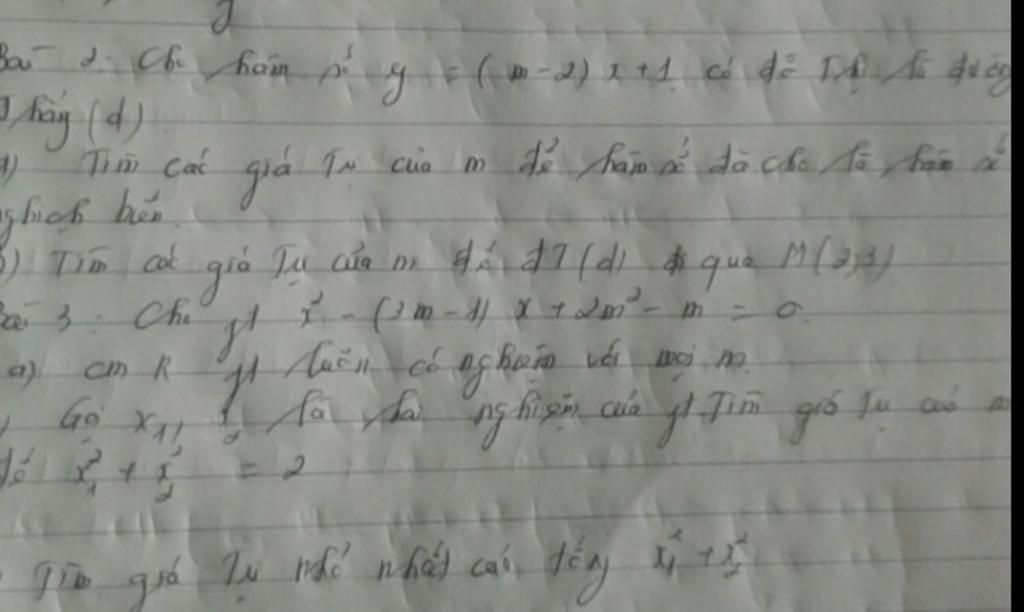 Bài 2: Cho hàm số y = (m-2)x+1 có đồ Thị là đường
Thẳng (d)
1) Tìm các giá Trị của m để hàm số đã cho là hàm số
nghịch biến
b) Tìm các giá Trị của m để đT(d) đi qua M(2;3)
Bài 3: Cho pt x² - (3m-1)x + 2m² - m = 0
a) cm R pt luôn có nghiệm với mọi m.
Gọi x₁, x₂ là hai nghiệm của pt. Tìm giá Trị của m
để x₁² + x₂² = 2
Tìm giá Trị nhỏ nhất của tổng x₁² + x₂²